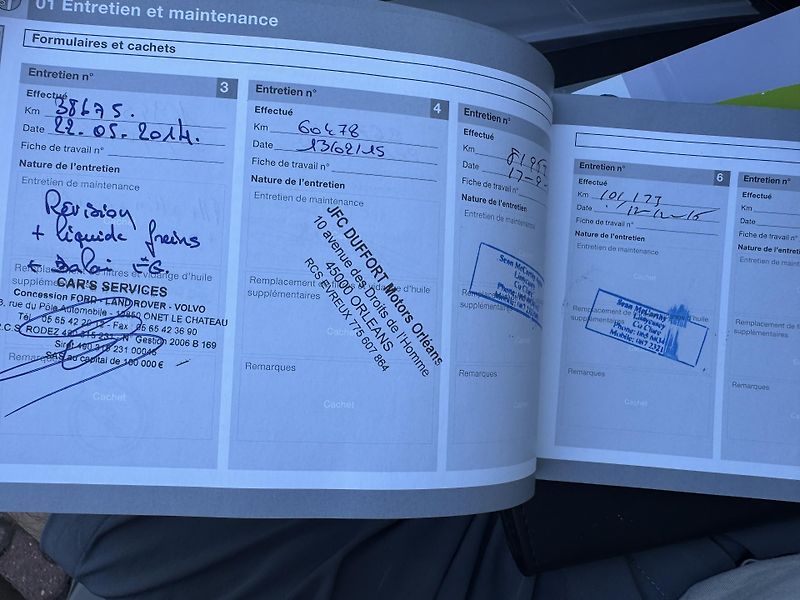 01 Entretien et maintenance
Formulaires et cachets
Entretien n° 3
Effectué
Km 38675.
Date 22.05.2014.
Fiche de travail n°
Nature de l'entretien
Entretien de maintenance
Révision
+ liquide freins
Remplacement filtres et vidange d'huile
supplémentaires
CAR'S SERVICES
Concession FORD - LANDROVER - VOLVO
rue du Pôle Automobile - 12850 ONET LE CHATEAU
Tél. 05 65 42 20 12 - Fax 05 65 42 36 90
R.C.S. RODEZ N° Gestion 2006 B 169
Siret 231 00045
SAS au capital de 100 000 €
Cachet
Entretien n° 4
Effectué
Km 60478
Date 13/02/15
Fiche de travail n°
Nature de l'entretien
Entretien de maintenance
JFC DUFFORT Motors Orléans
10 avenue des Droits de l'Homme
45000 ORLEANS
RCS EVREUX 775 607 864
Remplacement vidange d'huile
supplémentaires
Cachet
Remarques
Cachet
Entretien n°
Effectué
Km
Date
Fiche de travail n°
Nature de l'entretien
Entretien de maintenance
Sean McCarthy
Remplacement
supplémentaires
Remarques
Cachet
Entretien n° 6
Effectué
Km 101,173
Date 12-12-16
Fiche de travail n°
Nature de l'entretien
Entretien de maintenance
Cachet
Remplacement
supplémentaires
Sean McCarthy
Co Clare
Phone: 065
Mobile: 087
Remarques
Cachet
Entretien n°
Effectué
Km
Date
Fiche de travail
Nature de l'e
Entretien de
Remplacement de
supplémentaires
Remarques